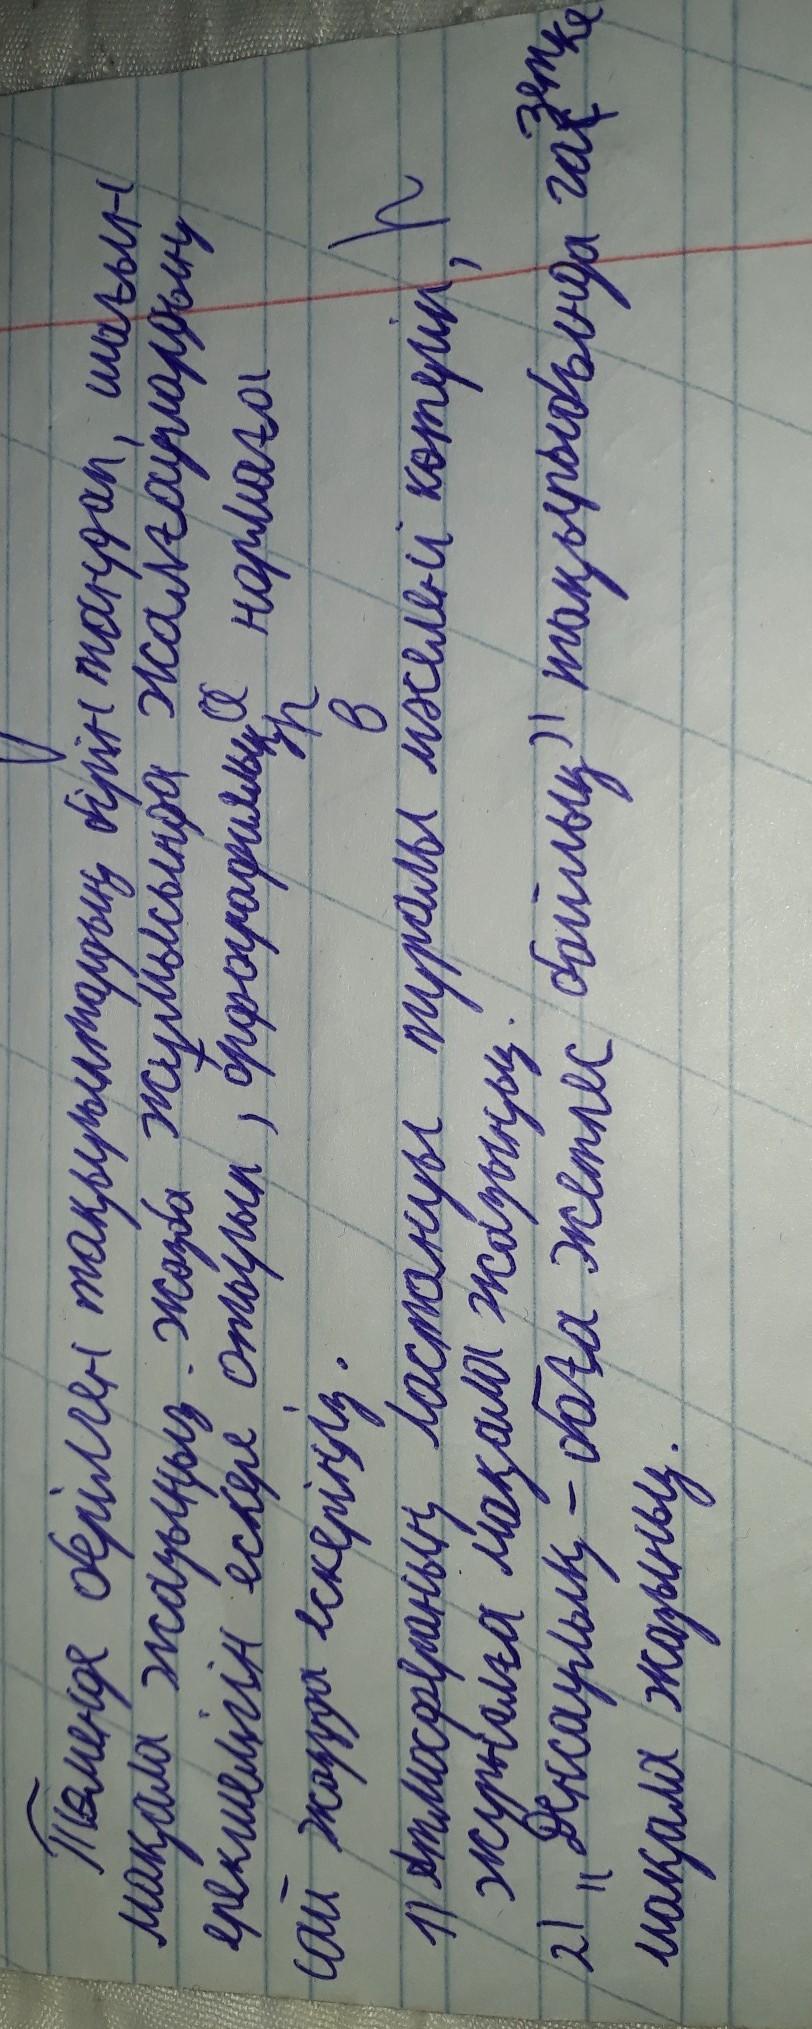 Төменде берілген тақырыптардың бірін таңдап, шағын
мақала жазыңыз. Жазба жұмысында жалғаулардың
ерекшелігін ескере отырып, орфографиялық нормаға
сай жазуды ескеріңіз.
1) Атмосфераның ластануы туралы мәселені көтеріп,
журналға мақала жазыңыз.
2) "Денсаулық – баға жетпес байлық" тақырыбында газетке
мақала жазыңыз.